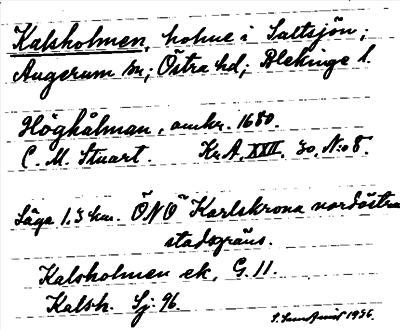 Kalsholmen, holme i Saltsjön;
Augerum sn; Östra hd; Blekinge l.
Höghålman, omkr. 1680.
C. M. Stuart. Kr.A. XXII, 30, N:o 8.
Läge 1.3 km. ÖNO Karlskrona nordöstra
stadsgräns.
Kalsholmen ek, G. 11.
Kalsh. Sj. 96.
1936.